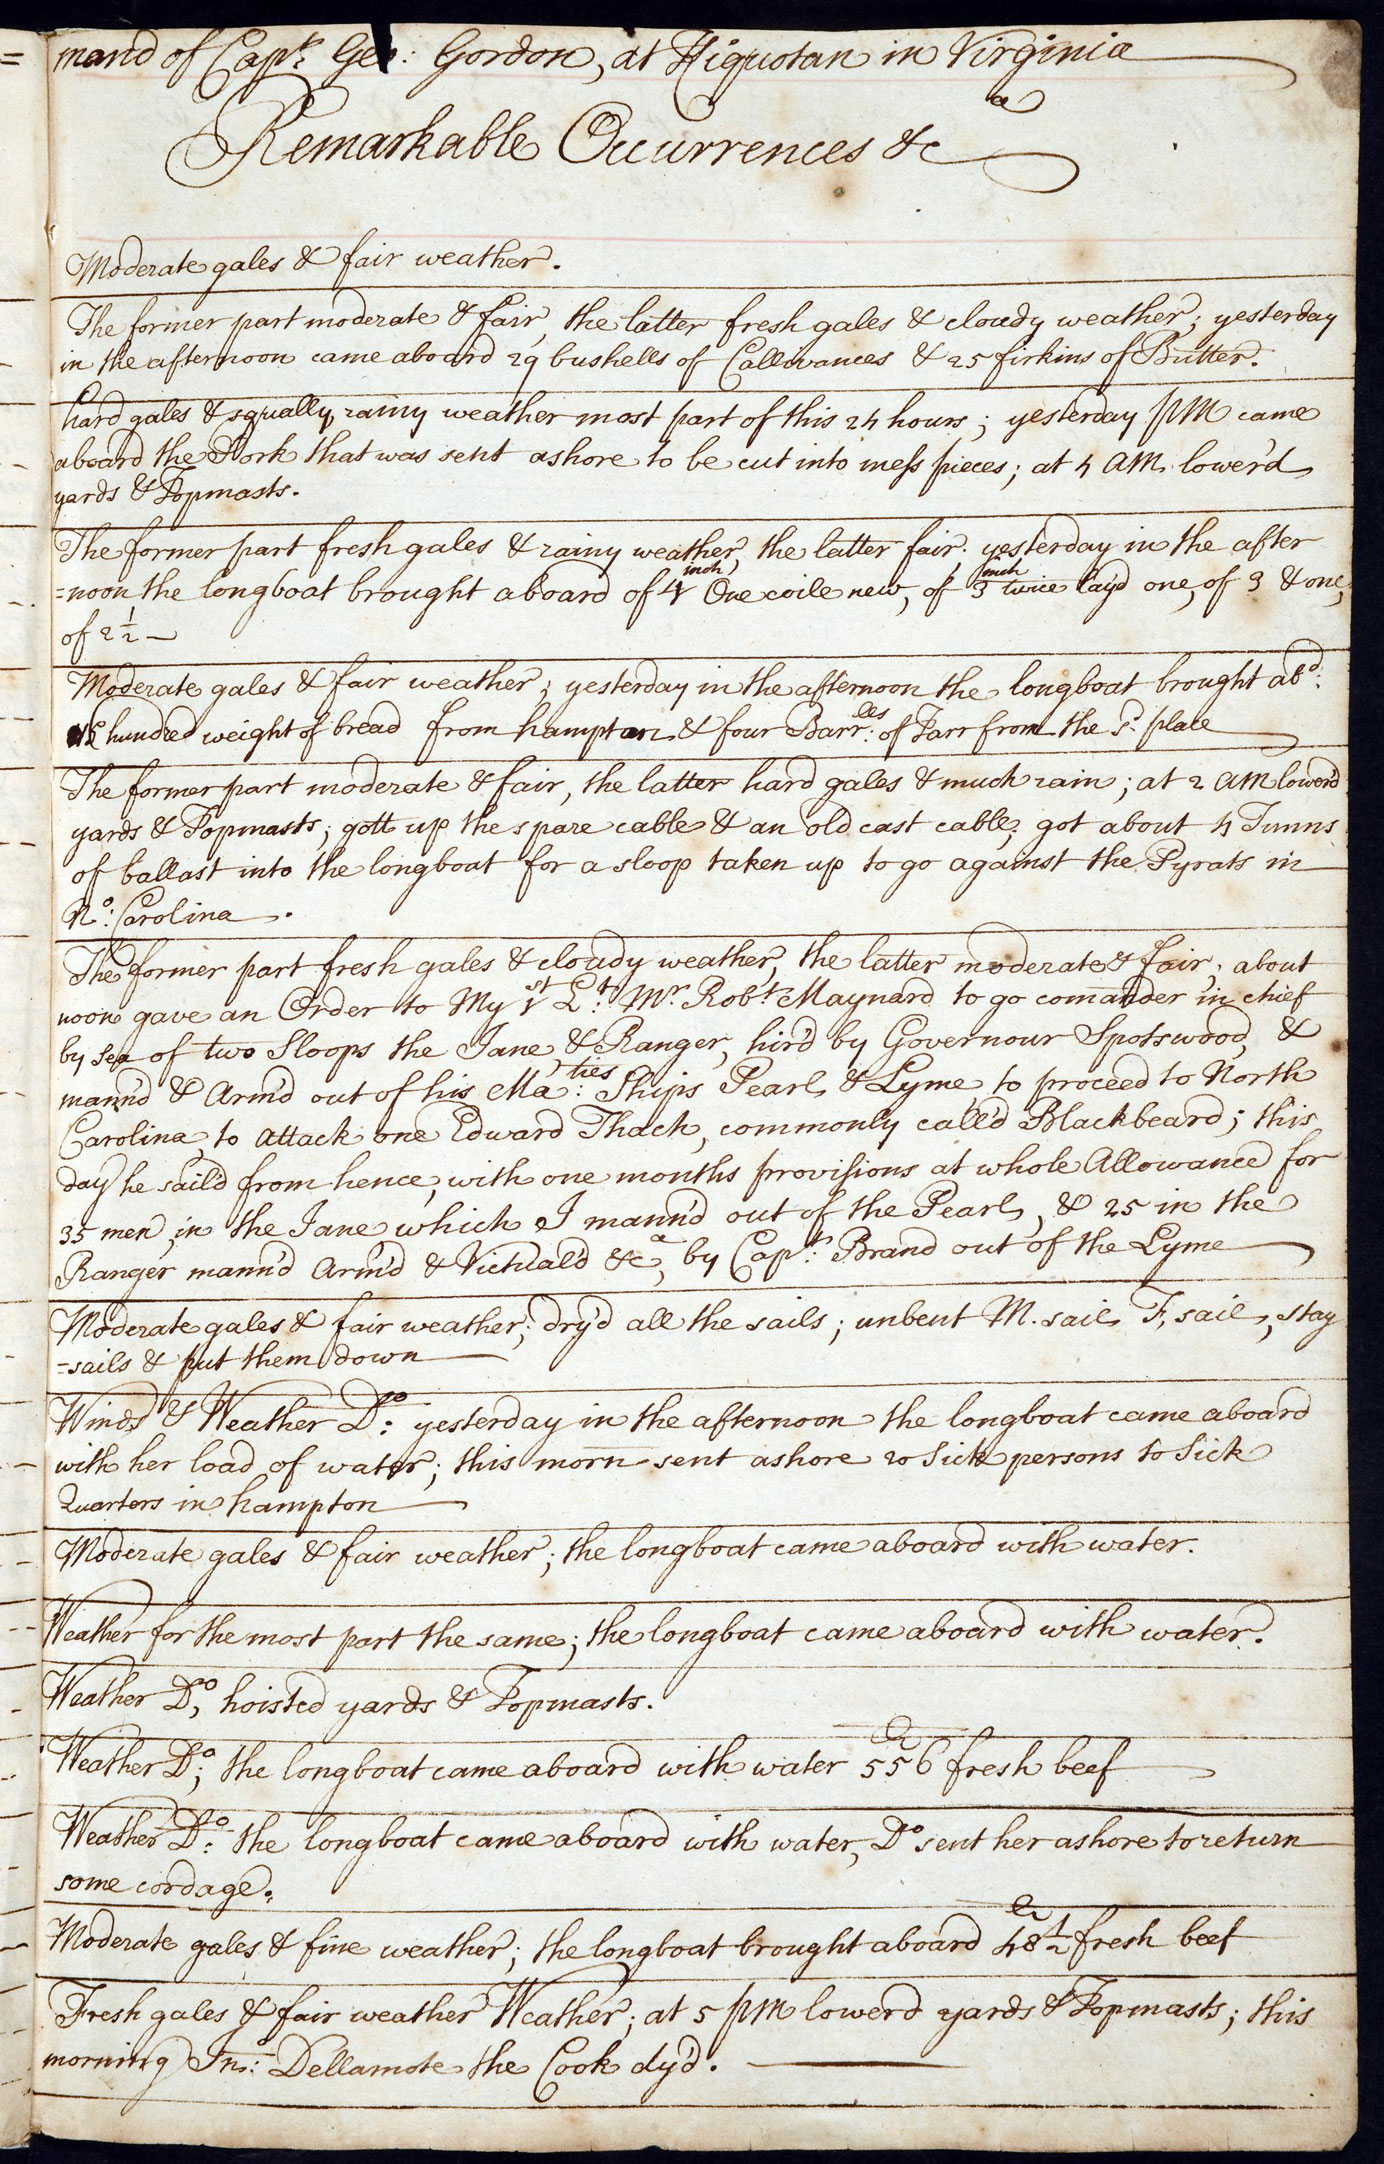 mand of Capt: Geo: Gordon, at Kiquotan in Virginia
Remarkable Occurrences &ca
Moderate gales & fair weather.
The former part moderate & fair, the latter fresh gales & cloudy weather; yesterday
in the afternoon came aboard 29 bushells of Callevances & 25 firkins of Butter.
hard gales & squally, rainy weather most part of this 24 hours; yesterday PM came
aboard the Pork that was sent ashore to be cut into mess pieces; at 4 AM lower'd
yards & Topmasts.
The former part fresh gales & rainy weather, the latter fair. yesterday in the after
=noon the longboat brought aboard of 4 inch One coile new, of 3 inch twice lay'd one, of 3 & one,
of 2 1/2 —
Moderate gales & fair weather; yesterday in the afternoon the longboat brought abd:
hundred weight of bread from hampton & four Barrles: of Tarr from the sd: place
The former part moderate & fair, the latter hard gales & much rain; at 2 AM lowerd
yards & Topmasts; gott up the spare cable & an old cast cable; got about 4 Tunns
of ballast into the longboat for a sloop taken up to go against the Pyrats in
No: Carolina.
The former part fresh gales & cloudy weather, the latter moderate & fair; about
noon gave an Order to My 1st Lt: Mr Robt: Maynard to go comander in chief
by sea of two Sloops the Jane, & Ranger, hir'd by Governour Spotswood, &
mann'd & Arm'd out of his Maties: Ships Pearl & Lyme, to proceed to North
Carolina, to attack one Edward Thach, commonly call'd Blackbeard; this
day he sail'd from hence, with one months provisions at whole Allowance for
35 men, in the Jane which I mann'd out of the Pearl, & 25 in the
Ranger mann'd Arm'd & Victual'd &ca, by Capt: Brand out of the Lyme
Moderate gales & fair weather; dry'd all the sails; unbent M. sail F, sail, stay
=sails & put them down
Winds & Weather Do: yesterday in the afternoon the longboat came aboard
with her load of water; this morn sent ashore 20 Sick persons to Sick
Quarters in hampton
Moderate gales & fair weather; the longboat came aboard with water.
Weather for the most part the same; the longboat came aboard with water.
Weather Do, hoisted yards & Topmasts.
Weather Do; the longboat came aboard with water 556 fresh beef
Weather Do: the longboat came aboard with water, Do sent her ashore to return
some cordage.
Moderate gales & fine weather; the longboat brought aboard 48 1/2 fresh beef
Fresh gales & fair weather Weather; at 5 PM lowerd yards & Topmasts; this
morning Jno: Dellamote the Cook dy'd.